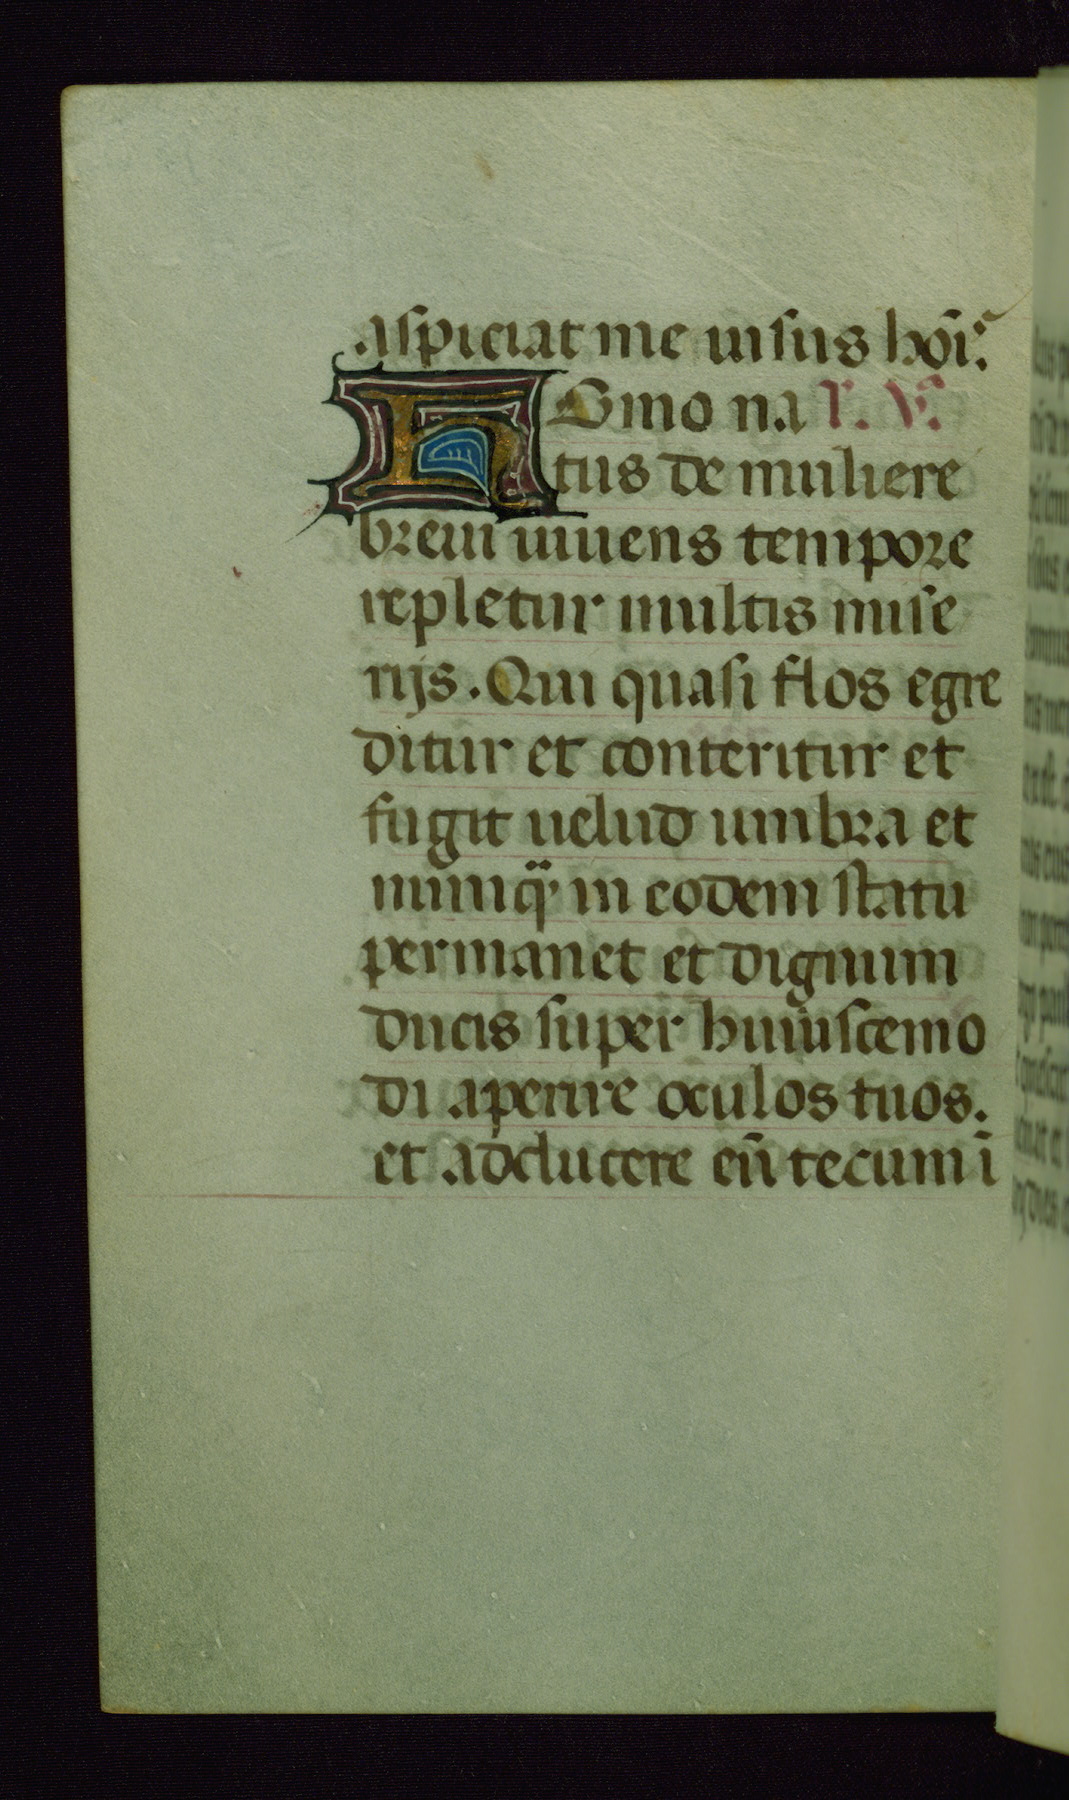 aspiciat me uisus hōīs.
HOmo na r. v.
tus de muliere
breui uiuens tempore
repletur multis mise
rijs. Qui quasi flos egre
ditur et conteritur et
fugit uelud umbra et
nunq̈ in eodem statu
permanet et dignum
ducis super huiuscemo
di aperire oculos tuos.
et adducere eū tecum ī